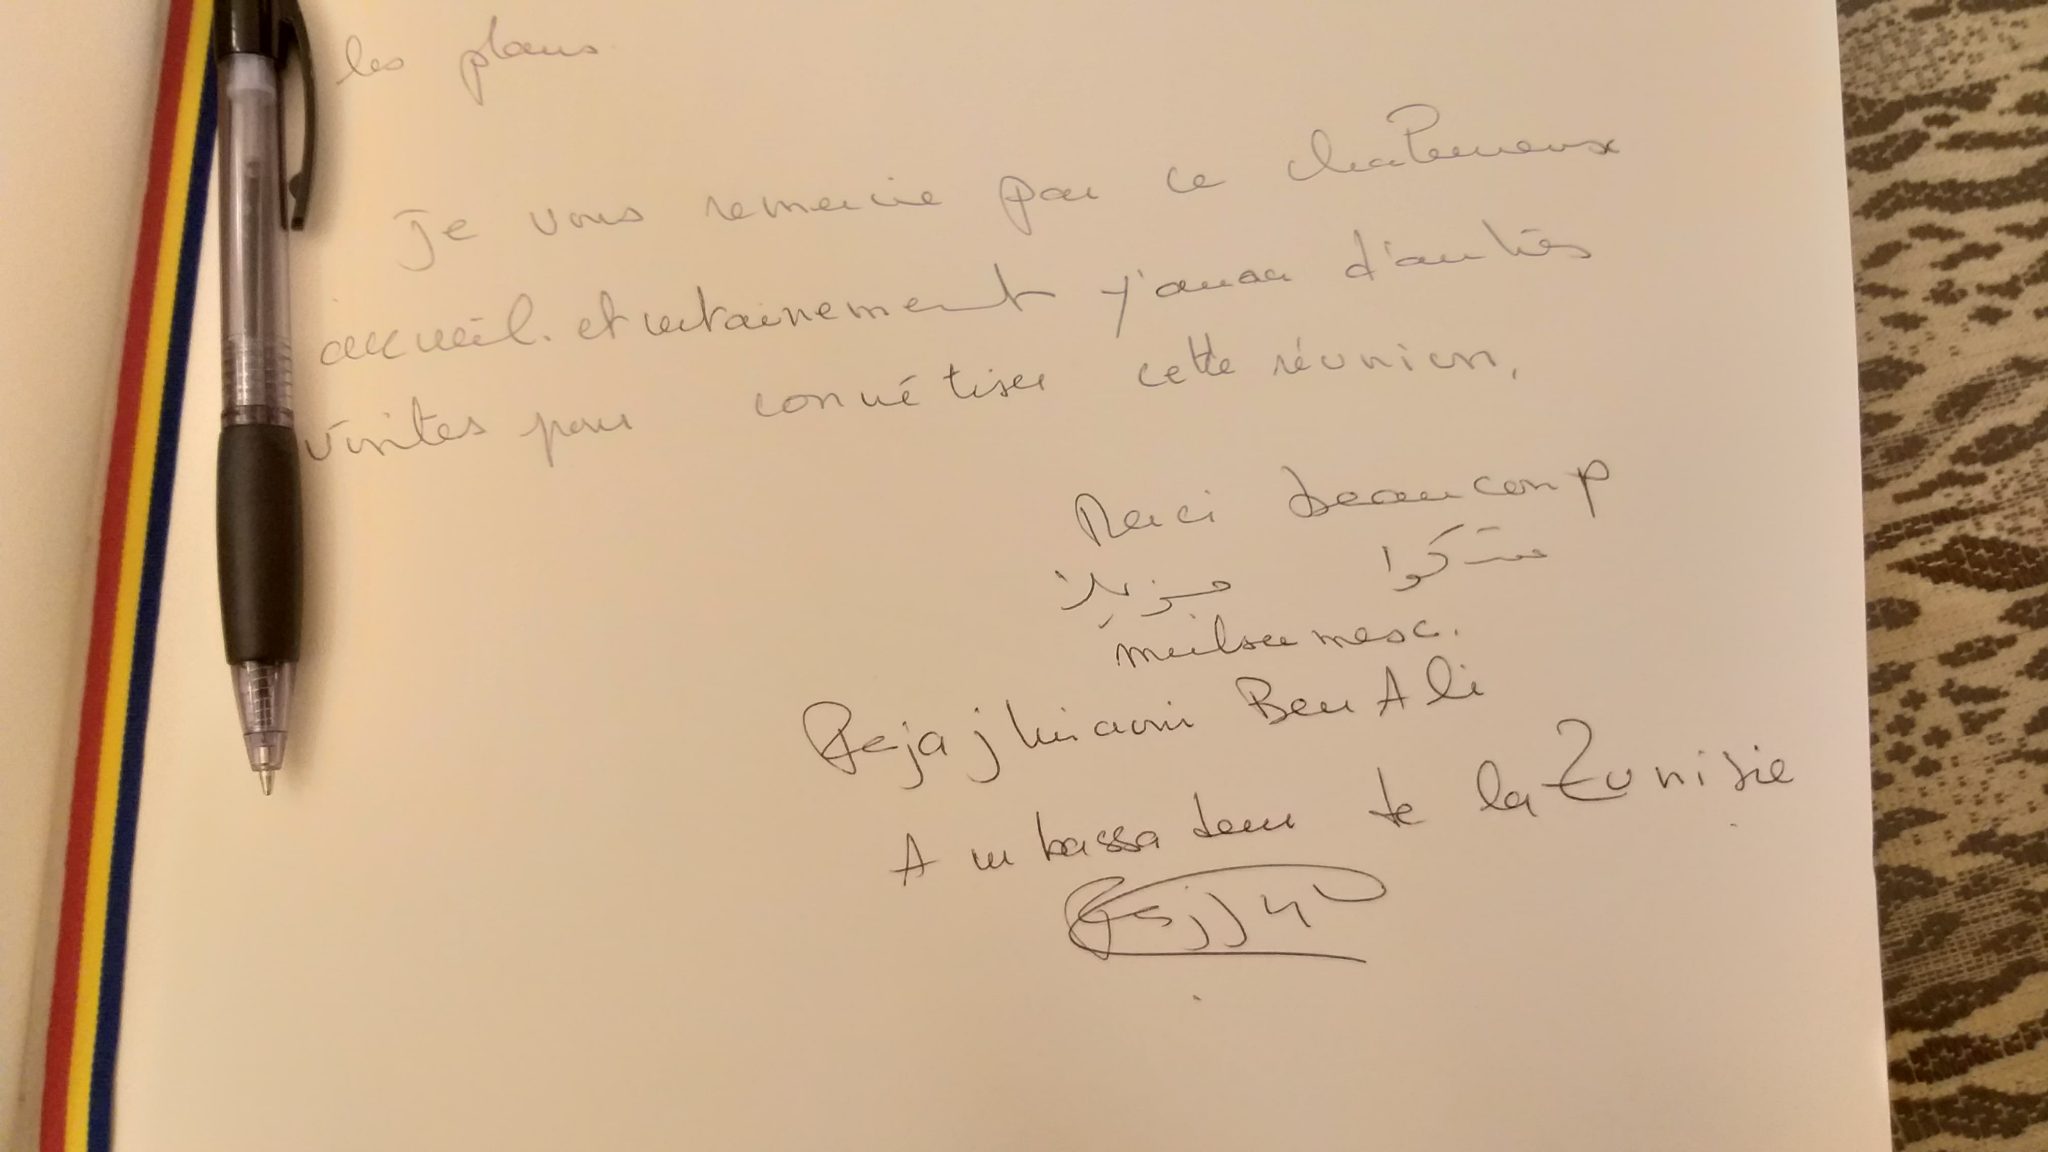 les plans
Je vous remercie par ce chaleureux
accueil. et certainement j'aurai d'autres
visites pour concrétiser cette réunion.
Merci beaucoup
شكرا جزيلا
multsumesc.
Ben Ali
Ambassadeur de la Tunisie